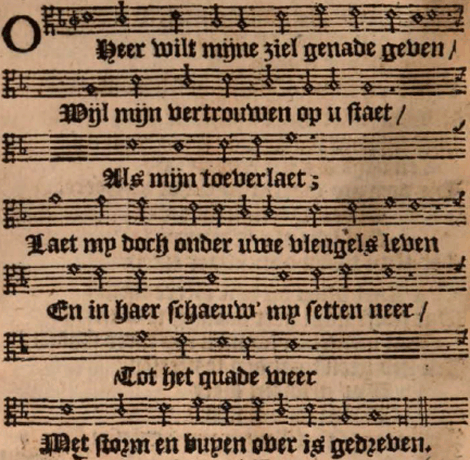 O Heer wilt mijne ziel genade geven /
Wijl mijn vertrouwen op u staet /
Als mijn toeverlaet ;
Laet my doch onder uwe vleugels leven
En in haer schaeuw' my setten neer /
Tot het quade weer
Met storm en buyen over is gedreven.